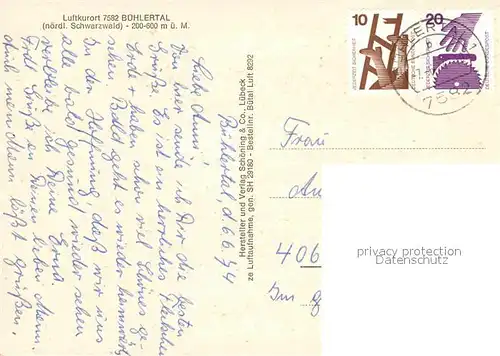 Luftkurort 7582 BÜHLERTAL
(nördl. Schwarzwald) - 200-600 m ü. M.
Bühlertal, d. 6.6.74
Liebe Anni!
Von hier sende ich Dir die besten
Grüße. Es ist ein herrliches Fleckchen
Erde + haben schon viel Schönes ge-
sehen. Bald geht es wieder heimwärts
In der Hoffnung, daß wir uns
alle bald gesund wieder sehen
verbleibe ich Deine Erna.
Frdl. Grüße an Deinen lieben Mann.
Auch mein Mann läßt grüßen.
Hersteller und Verlag Schöning & Co., Lübeck
Luftaufnahme, gen. SH 29180 - Bestellnr. Bütal Luft 8292
10
20
JEDERZEIT SICHERHEIT
7582
Frau
An
406
Im
privacy protection
Datenschutz